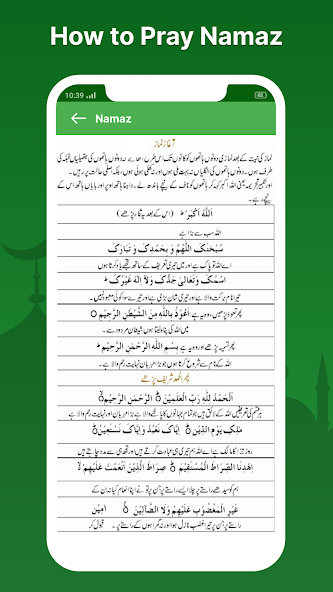 How to Pray Namaz
10:39
Namaz
آغاز نماز
نماز کی نیت کے بعد نمازی دونوں ہاتھوں کو کانوں تک اس طرح اٹھائے کہ دونوں ہاتھوں کی ہتھیلیاں قبلہ کی
طرف ہوں۔ دونوں ہاتھوں کی انگلیاں نہ بہت ملی ہوں اور نہ کھلی ہوئی ہوں، بلکہ اصلی حالت پر رہیں۔
اور تکبیر تحریمہ یعنی اللہ اکبر کہہ کر ہاتھوں کو ناف کے نیچے باندھ لے۔ داہنا ہاتھ اوپر اور بایاں ہاتھ اس کے
نیچے رہے۔
اَللّٰهُ اَکْبَرُ ؕ (اس کے بعد یہ ثناء پڑھے)
اللہ سب سے بڑا ہے
سُبْحٰنَکَ اللّٰهُمَّ وَ بِحَمْدِکَ وَ تَبَارَکَ
اے اللہ تو پاک ہے اور میں تیری تعریف کے ساتھ تجھے یاد کرتا ہوں
اسْمُکَ وَتَعَالٰی جَدُّکَ وَلَآ اِلٰهَ غَیْرُکَ ؕ
تیرا نام برکت والا ہے اور تیری شان بڑی ہے اور تیرے سوا کوئی معبود نہیں۔
پھر تعوذ پڑھیں، وہ یہ ہے اَعُوْذُ بِاللّٰهِ مِنَ الشَّیْطٰنِ الرَّجِیْمِ ○
میں اللہ کی پناہ لیتا ہوں شیطان مردود سے۔
پھر تسمیہ پڑھے اور وہ یہ ہے بِسْمِ اللّٰهِ الرَّحْمٰنِ الرَّحِیْمِ ؕ
اللہ کے نام سے شروع کرتا ہوں جو بڑا مہربان نہایت رحم والا ہے
پھر الحمد شریف پڑھے
اَلْحَمْدُ لِلّٰهِ رَبِّ الْعٰلَمِیْنَ ○ الرَّحْمٰنِ الرَّحِیْمِ ○
ہر قسم کی تعریفیں اللہ کے لائق ہیں جو تمام جہانوں کا پالنے والا ہے بڑا مہربان اور نہایت رحم والا ہے
مٰلِکِ یَوْمِ الدِّیْنِ ○ اِیَّاکَ نَعْبُدُ وَاِیَّاکَ نَسْتَعِیْنُ ○
روز جزا کا مالک ہے اے اللہ ہم تیری ہی عبادت کرتے ہیں اور تجھ ہی سے مدد چاہتے ہیں
اِهْدِنَا الصِّرَاطَ الْمُسْتَقِیْمَ ○ صِرَاطَ الَّذِیْنَ اَنْعَمْتَ عَلَیْهِمْ
ہم کو سیدھے رستے پر چلا ایسے رستے پر جن پر تو نے اپنا انعام کیا نہ ان کے
غَیْرِ الْمَغْضُوْبِ عَلَیْهِمْ وَلَا الضَّآلِّیْنَ ○ اٰمِیْن
راستے پر جن پر تیرا غضب نازل ہوا اور نہ گمراہوں کے راستے پر۔ قبول کر